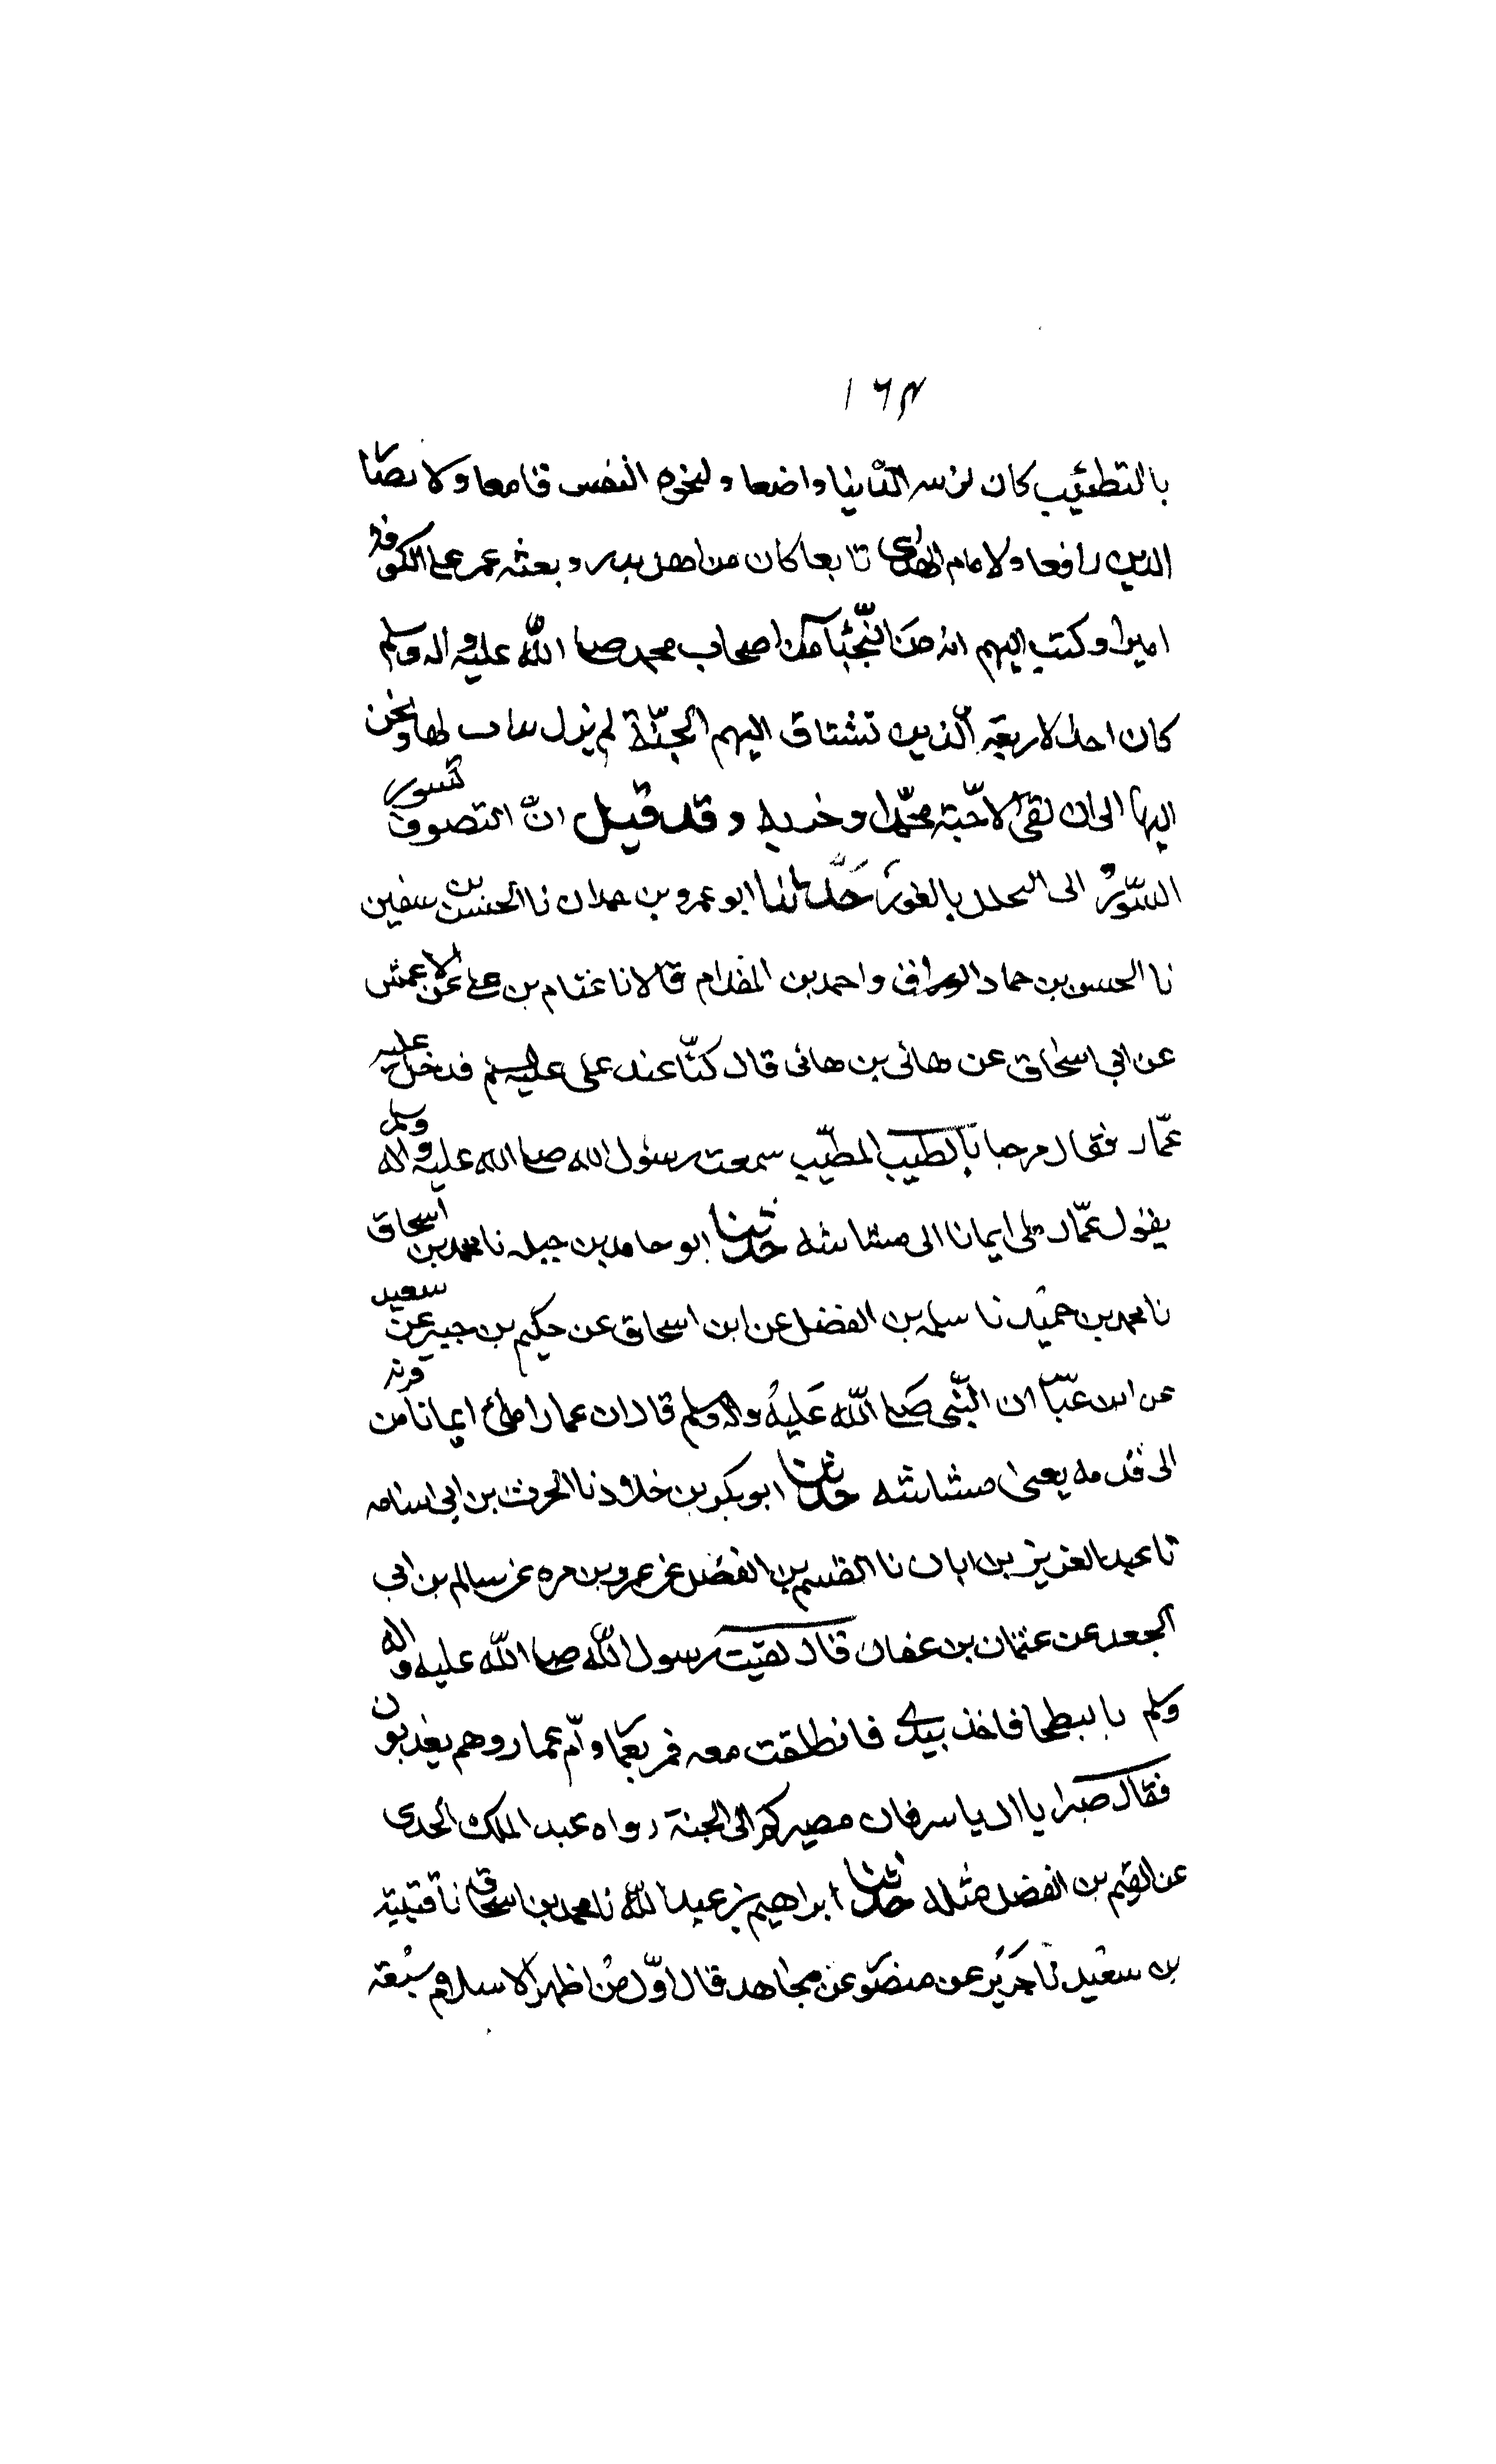 ١٦٤
بالتطييب كان لزينة الدنيا واضعا ولنخوة النفس قامعا ولانصار
الدين رافعا ولامام الهدى تابعا كان من اهل بدر وبعثه عمر على الكوفة
اميرا وكتب اليهم انه من النجباء من اصحاب محمد صلى الله عليه واله وسلم
كان احد الاربعة الذين تشتاق اليهم الجنة لم يزل يداب لها ويحن
اليها الى ان لقى الاحبة محمدا وحزبه وقد قيل ان التصوف تسور
السور الى التحلل بالغور حدثنا ابو عمرو بن حمدان نا الحسن بن سفين
نا الحسن بن حماد الوراق واحمد بن المقدام قالا نا عثام بن على عن الاعمش
عن ابى اسحاق عن هانى بن هانى قال كنّا عند على عليه السلم فدخل عليه
عمّار فقال مرحبا بالطيب المطيّب سمعت رسول الله صلى الله عليه واله وسلم
يقول عمّار ملى ايمانا الى مشاشه حدثنا ابو حامد بن جبله نا محمد بن اسحاق
نا محمد بن حميد نا سلمه بن الفضل عن ابن اسحاق عن حكيم بن جبير عن سعيد
عن ابن عبّاس ان النّبى صلى الله عليه واله وسلم قال ان عمارا ملئ ايمانا من قرنه
الى قدمه يعنى مشاشه حدثنا ابو بكر بن خلاد نا الحرث بن ابى اسامه
نا عبد العزيز بن ابان نا القسم بن الفضل عن عمرو بن مره عن سالم بن ابى
الجعد عن عثمان بن عفان قال لقيت رسول الله صلى الله عليه واله
وسلم بالبطحا فاخذ بيدى فانطلقت معه فمر بعمار وام عمار وهم يعذبون
فقال صبرا يا ال ياسر فان مصيركم الى الجنة رواه عبد الملك الجدى
عن القسم بن الفضل مثله حدثنا ابراهيم بن عبد الله نا محمد بن اسحاق نا قتيبة
بن سعيد نا جرير عن منصور عن مجاهد قال اوّل من اظهر الاسلام سبعة